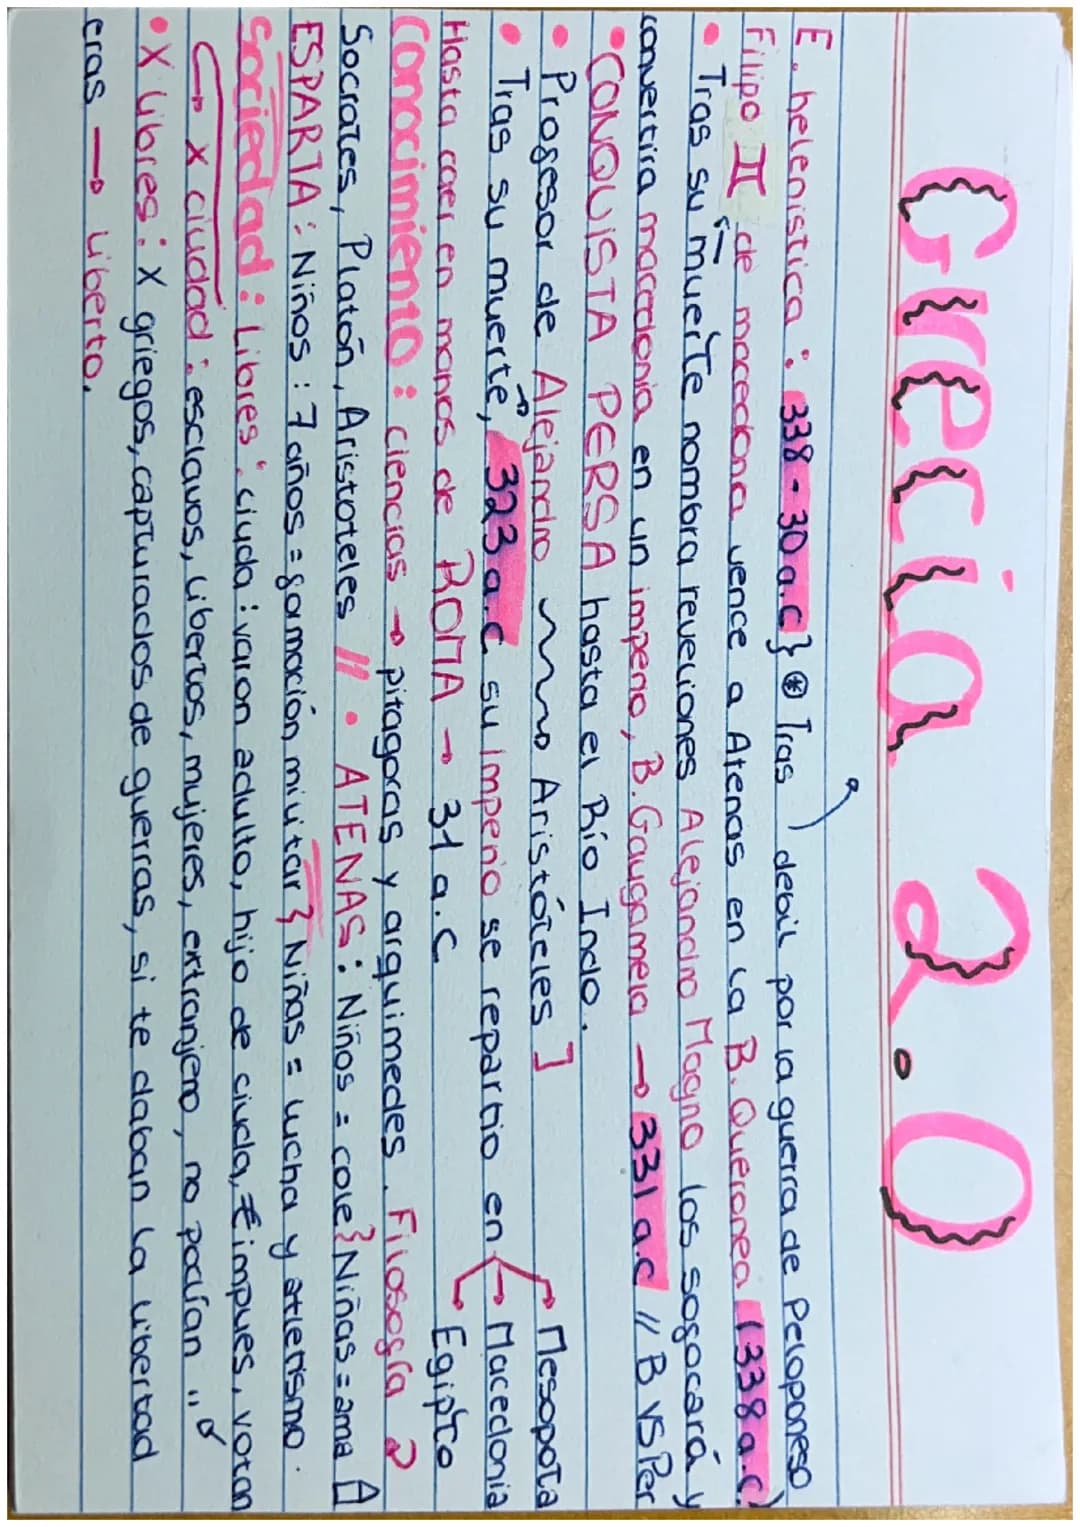 Grecia 2.0
E. helenistica : 338-30 a.c } * Tras debil por la guerra de Peloponeso
Filipo II de macedona vence a Atenas en la B. Queronea (338 a.c)
• Tras su muerte nombra reveliones Alejandro Magno las sofocará y
convertira macedonia en un imperio, B. Gaugamela → 331 a.c // B vs Per
• CONQUISTA PERSA hasta el Río Indo.
• Profesor de Alejandro ~~~ Aristóteles ]
• Tras su muerte, 323 a.c su imperio se repartio en Mesopota
Macedonia
Hasta caer en manos de ROMA → 31 a.C Egipto
Conocimiento : ciencias → pitagoras y arquimedes. Filosofía
Socrates, Platón, Aristoteles // • ATENAS : Niños = cole } Niñas = ama
ESPARTA : Niños : 7 años = formación militar } Niñas = lucha y atletismo.
Sociedad : Libres : ciuda : varon adulto, hijo de ciuda, impues, votan
↳ x ciudad : esclavos, libertos, mujeres, extranjero, no podían
• X libres : x griegos, capturados de guerras, si te daban la libertad
eras → liberto.